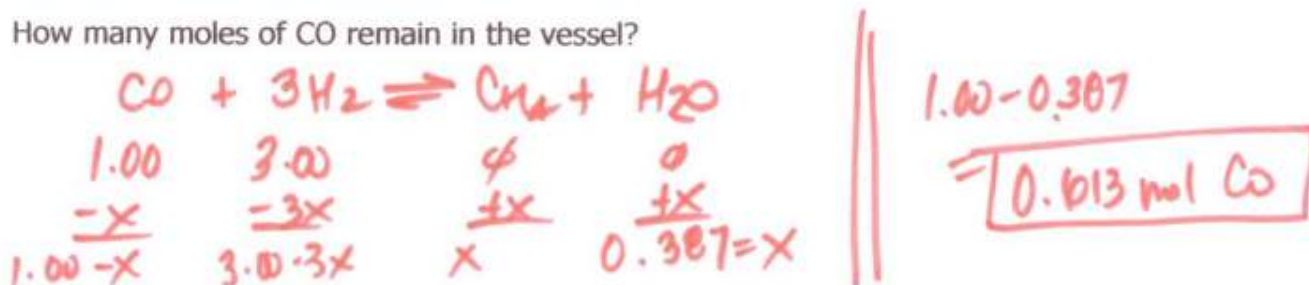 How many moles of CO remain in the vessel?
CO + 3H2 ⇌ CH4 + H2O
1.00 3.00 0 0
-x -3x +x +x
1.00-x 3.00-3x x 0.387=x
1.00-0.387
= 0.613 mol CO